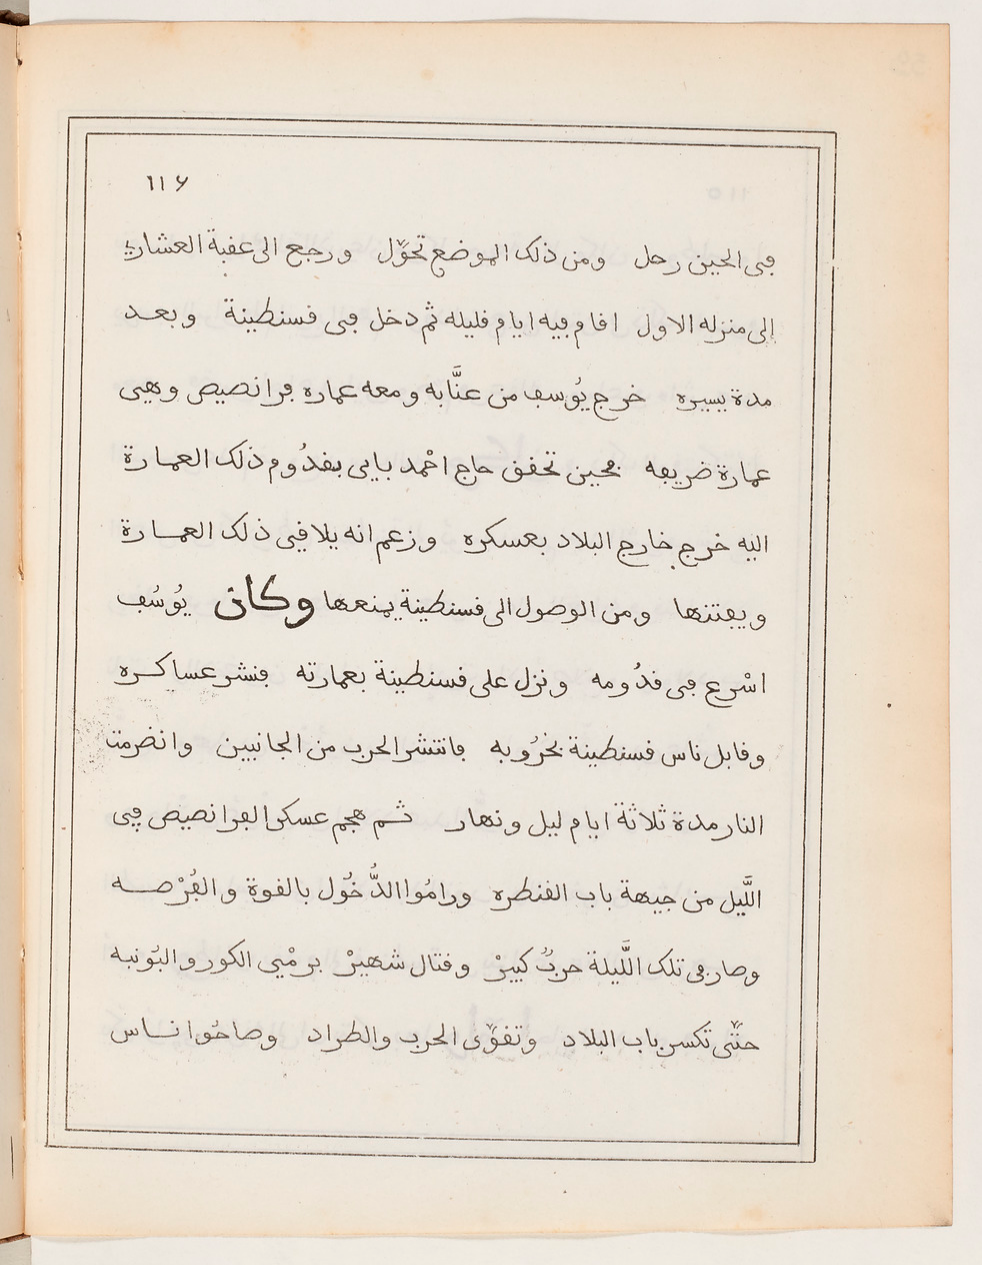 ١١٦
في الحين رحل ومن ذلك الموضع تحوّل ورجع الى عقبة العشاري
إلى منزله الاول اقام فيه ايام قليله ثم دخل في قسنطينة وبعد
مدة يسيره خرج يُوسف من عنَّابه ومعه عماره فرانصيص وهي
عمارة ضريفه فحين تحقق حاج احْمد بايي بقدُوم ذلك العمارة
اليه خرج خارج البلاد بعسكره وزعم انه يلاقي ذلك العمارة
ويفتنها ومن الوصول الى قسنطينة يمنعها وكان يُوسُف
اسْرع في قدُومه ونزل على قسنطينة بعمارته فنشر عساكره
وقابل ناس قسنطينة بحرُوبه فانتشر الحرب من الجانبين وانضرمت
النار مدة ثلاثة ايام ليل ونهار ثم هجم عسكر الفرانصيص في
اللَّيل من جيهة باب القنطره ورامُوا الدُّخُول بالقوة والفُرْصه
وصار في تلك اللَّيلة حربٌ كبيرْ وقتال شهيرْ برمْيي الكور والبُونبه
حتّى تكسر باب البلاد وتقوّى الحرب والطراد وصاحُوا ناس